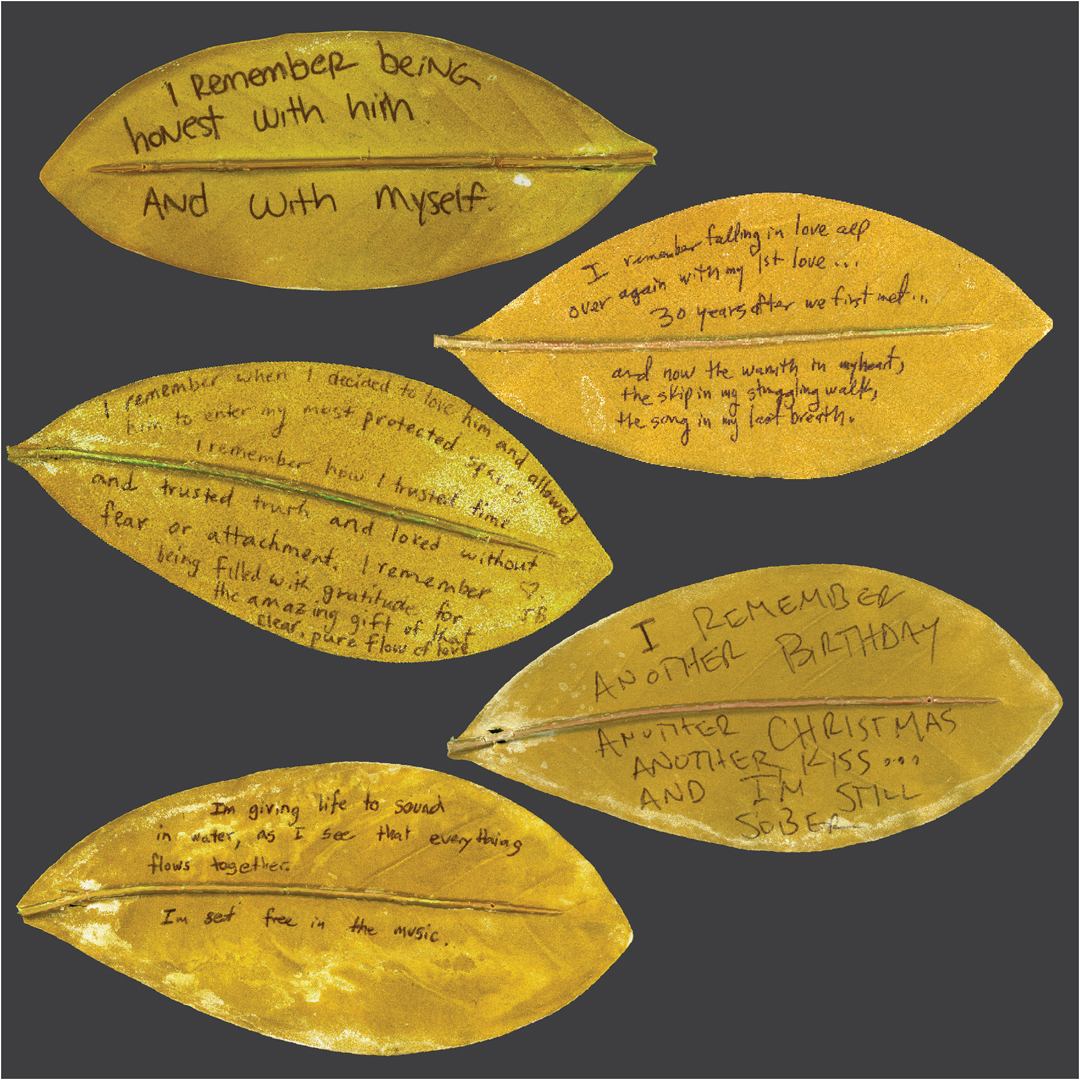 I Remember being
honest with him.
And with myself.
I remember falling in love all
over again with my 1st love...
30 years after we first met...
and now the warmth in my heart,
the skip in my struggling walk,
the song in my last breath.
I remember when I decided to love him and allowed
him to enter my most protected spaces
I remember how I trusted time
and trusted truth and loved without
fear or attachment. I remember
being filled with gratitude for
the amazing gift of that
clear, pure flow of love
♡
I REMEMBER
ANOTHER BIRTHDAY
ANOTHER CHRISTMAS
ANOTHER KISS...
AND I'M STILL
SOBER
Im giving life to sound
in water, as I see that everything
flows together.
Im set free in the music.